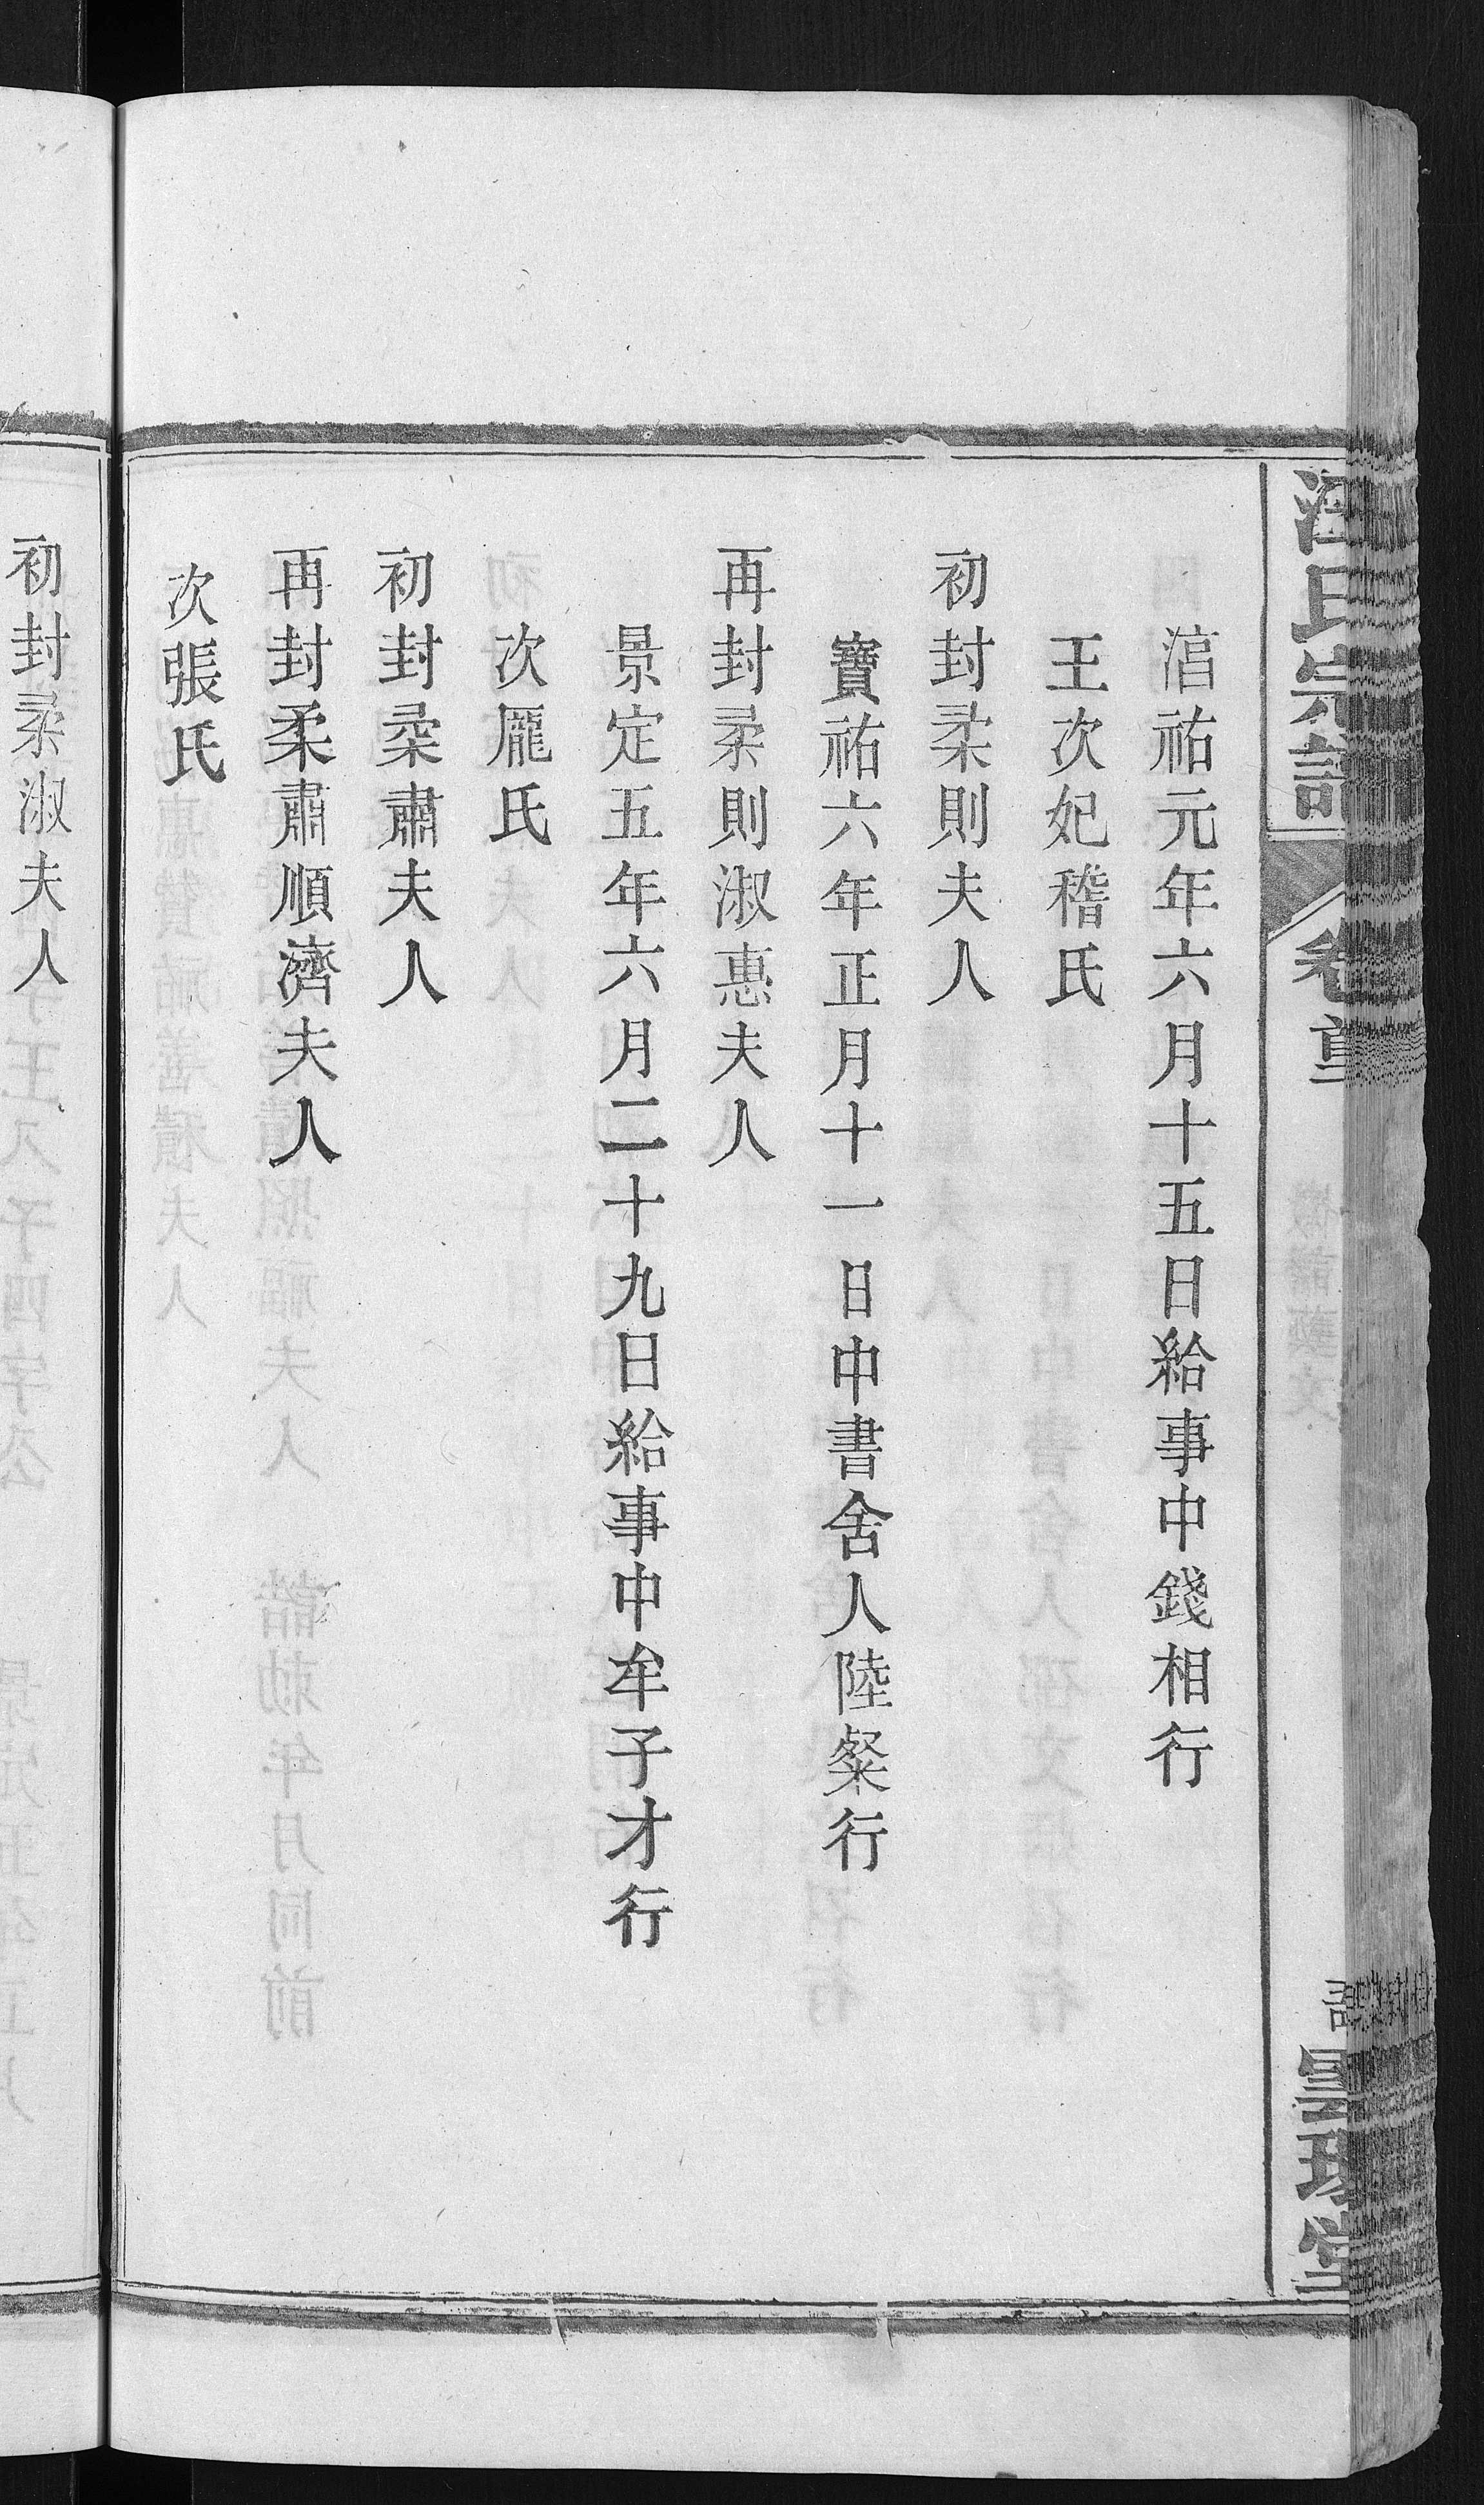 汪氏宗譜
卷首
淳祐元年六月十五日給事中錢相行
王次妃稽氏
初封柔則夫人
寶祐六年正月十一日中書舍人陸粲行
再封柔則淑惠夫人
景定五年六月二十九日給事中牟子才行
次龎氏
初封柔肅夫人
再封柔肅順濟夫人
次張氏
初封柔淑夫人